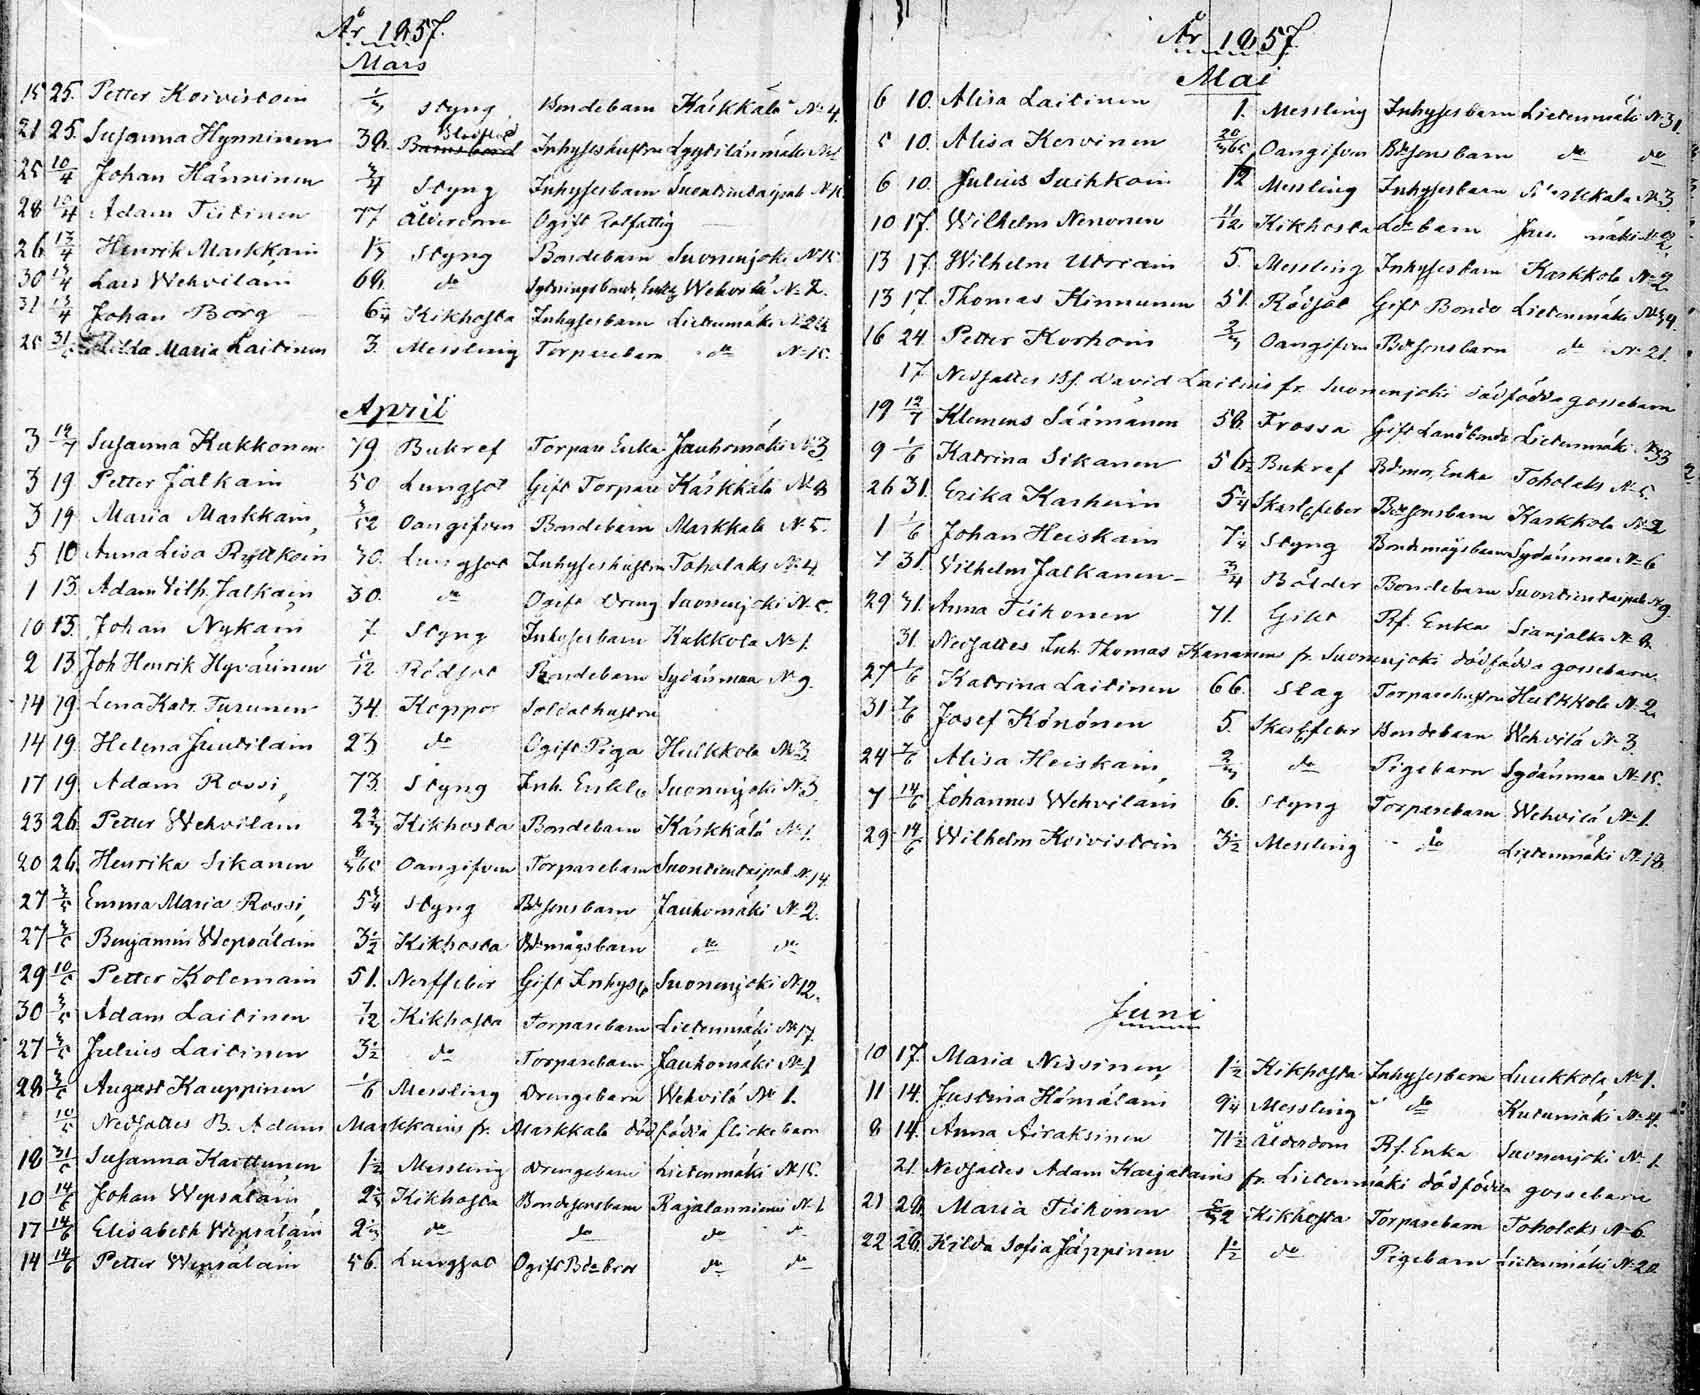 År 1857.
Mars
15 25. Petter Koivistoin 1/3 Styng Bondebarn Käskkälä No 4.
21 25. Susanna Hynninen 38. Blodflod Barnsbord Inhyseshustru Lyytilänmäki No
25 10/4 Johan Hänninen 3/4 Styng Inhysesbarn Suontientaipal No
28 10/4 Adam Tiitinen 77 Ålderdom Ogift Rotfattig
26 13/4 Henrik Markkain Styng Bondebarn Suonenjoki No 15
30 13/4 Lars Wehvilain 68. do Enkl. Wehvilä No 2.
31 13/4 Johan Borg 6 1/4 Kikhosta Inhysesbarn Lietenmäki No 24
25 31/5 Hilda Maria Laitinen 3. Messling Torparebarn do No 15.
April
3 19/7 Susanna Kukkonen 79 Bukref Torpare Enka Jauhomäki No 3
3 19 Petter Jalkain 50 Lungsot Gift Torpare Käskkälä No 8
3 19 Maria Markkain 3/52 Oangifven Bondebarn Markkala No 5.
5 10 Anna Lisa Ryttkoin 70. Lungsot Inhyseshustru Toholaks No 4
1 13. Adam Wilh. Jalkain 30. do Ogift Dreng Suonenjoki No 5.
10 13. Johan Nykain 7 Styng Inhysesbarn Kukkola No 1.
2 13 Joh Henrik Hyvärinen /12 Rödsot Bondebarn Sydänmaa No 9.
14 19. Lena Katr. Turunen 34. Koppor Soldathustru
14 19. Helena Juutilain 23 do Ogift Piga Hulkkola No 3.
17 19 Adam Rossi 73. Styng Inh. Enkl. Suonenjoki No 3
23 26. Petter Wehvilain 2 Kikhosta Bondebarn Käskkälä No 1.
20 26. Henrika Sikanen 8/365 Oangifven Torparebarn Suontientaipal No 14.
27 3/5 Emma Maria Rossi 5 3/4 Styng Bdesonsbarn Jauhomäki No 2.
27 3/5 Benjamin Wepsäläin 3 1/2 Kikhosta Bdemågsbarn do do
29 10/5 Petter Kolemain 51. Nerffeber Gift Inhyses Suonenjoki No 12.
30 3/5 Adam Laitinen 7/12 Kikhosta Torparebarn Lietenmäki No 17.
27 3/5 Julius Laitinen 3 1/2 do Torparebarn Jauhomäki No 1
28 3/5 August Kauppinen 1/6 Messling Drengebarn Wehvilä No 1.
10/5 Nedsattes B. Adam Markkains fr. Markkala dödfödda flickebarn
18 31/5 Susanna Karttunen 1 1/2 Messling Drengebarn Lietenmäki No 15.
10 14/6 Johan Wepsäläin 2 Kikhosta Bondesonsbarn Rajalanniemi No 1
17 14/6 Elisabeth Wepsäläin 2 do do do do
14 14/6 Petter Wepsäläin 56. Lungsot Ogift Bdebror do do
År 1857.
Mai
6 10. Alisa Laitinen 1. Messling Inhysesbarn Lietenmäki No 31.
5 10. Alisa Kervinen 20/365 Oangifven Bdesonsbarn do do
6 10. Julius Suihkoin Messling Inhysesbarn No 3.
10 17. Wilhelm Nenonen 11/12 Kikhosta Do barn
13 17. Wilhelm Utriain 5. Messling Inhysesbarn Karkkola No 2
13 17. Thomas Kinnunen 51. Rödsot Gift Bonde Lietenmäki No 34.
16 24. Petter Korhoin Oangifven Bdesonsbarn do No 21.
17. Nedsattes Bf. David Laitins fr. Suonenjoki dödfödda gossebarn
19 12/7 Klemens Säämänen 58. Frossa Gift Landbonde Lietenmäki No 33
9 1/6 Katrina Sikanen 56 1/2 Bukref Bdemor, Enka Toholaks No 5.
26 31. Erika Karhuin 5 1/4 Skarl.feber Bdesonsbarn Karkkola No 2
1 1/6 Johan Heiskain 7 1/4 Styng Bondemågsbarn Sydänmaa No 6
7 31. Wilhelm Jalkanen 3/4 Bölder Bondebarn Suontientaipal No 9.
29 31. Anna Tiihonen 71. Gikt Rf. Enka Sianjalka No 8.
31. Nedsattes Inh. Thomas Kananens fr. Suonenjoki dödfödda gossebarn.
27 1/6 Katrina Laitinen 66. Slag Torparehustru Hulkkola No 2.
31 7/6 Josef Könönen 5. Skarl.feber Bondebarn Wehvilä No 3
24 7/6 Alisa Heiskain do Pigebarn Sydänmaa No 15.
7 14/6 Johannes Wehvilain 6. Styng Torparebarn Wehvilä No 1.
29 14/6 Wilhelm Koivistoin 3 1/2 Messling do Lietenmäki No 18
Juni
10 17. Maria Nissinen 1 1/2 Kikhosta Inhysesbarn Luukkola No 1.
11 14. Justina Hämäläin 9 1/4 Messling do Kutumäki No 4.
8 14. Anna Airaksinen 71 1/2 Ålderdom Rf. Enka Suonenjoki No 1.
21. Nedsattes Adam Karjalains fr. Lietenmäki dödfödda gossebarn
21 28. Maria Tiihonen /52 Kikhosta Torparebarn Toholaks No 6
22 28. Hilda Sofia Jäppinen 1 1/2 do Pigebarn Lietenmäki No 20